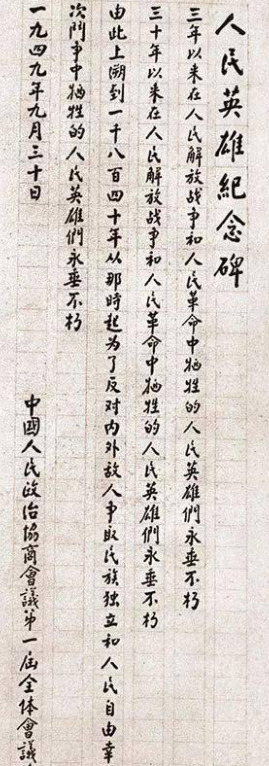 人民英雄紀念碑
三年以来在人民解放战争和人民革命中牺牲的人民英雄們永垂不朽
三十年以来在人民解放战争和人民革命中牺牲的人民英雄們永垂不朽
由此上溯到一千八百四十年从那時起为了反对内外敌人争取民族独立和人民自由幸
次鬥争中牺牲的人民英雄們永垂不朽
一九四九年九月三十日
中國人民政治協商會議第一屆全体會議